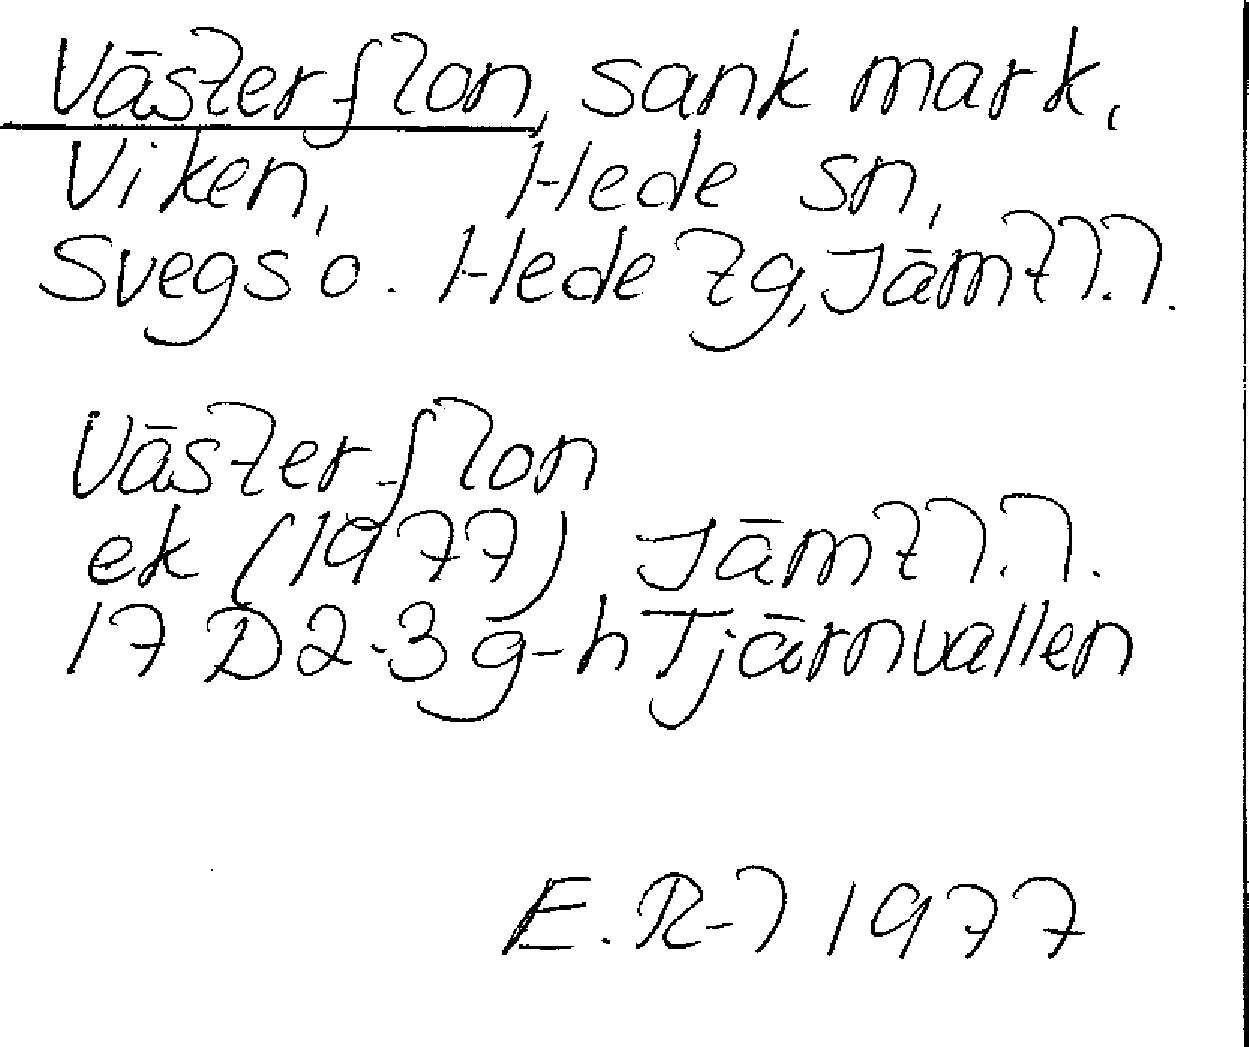 Västerflon, sank mark,
Viken, Hede sn,
Svegs o. Hede tg, Jämtl.l.
Västerflon
ek (1977) Jämtl.l.
17 D2-3 g-h Tjärnvallen
E.R-l 1977